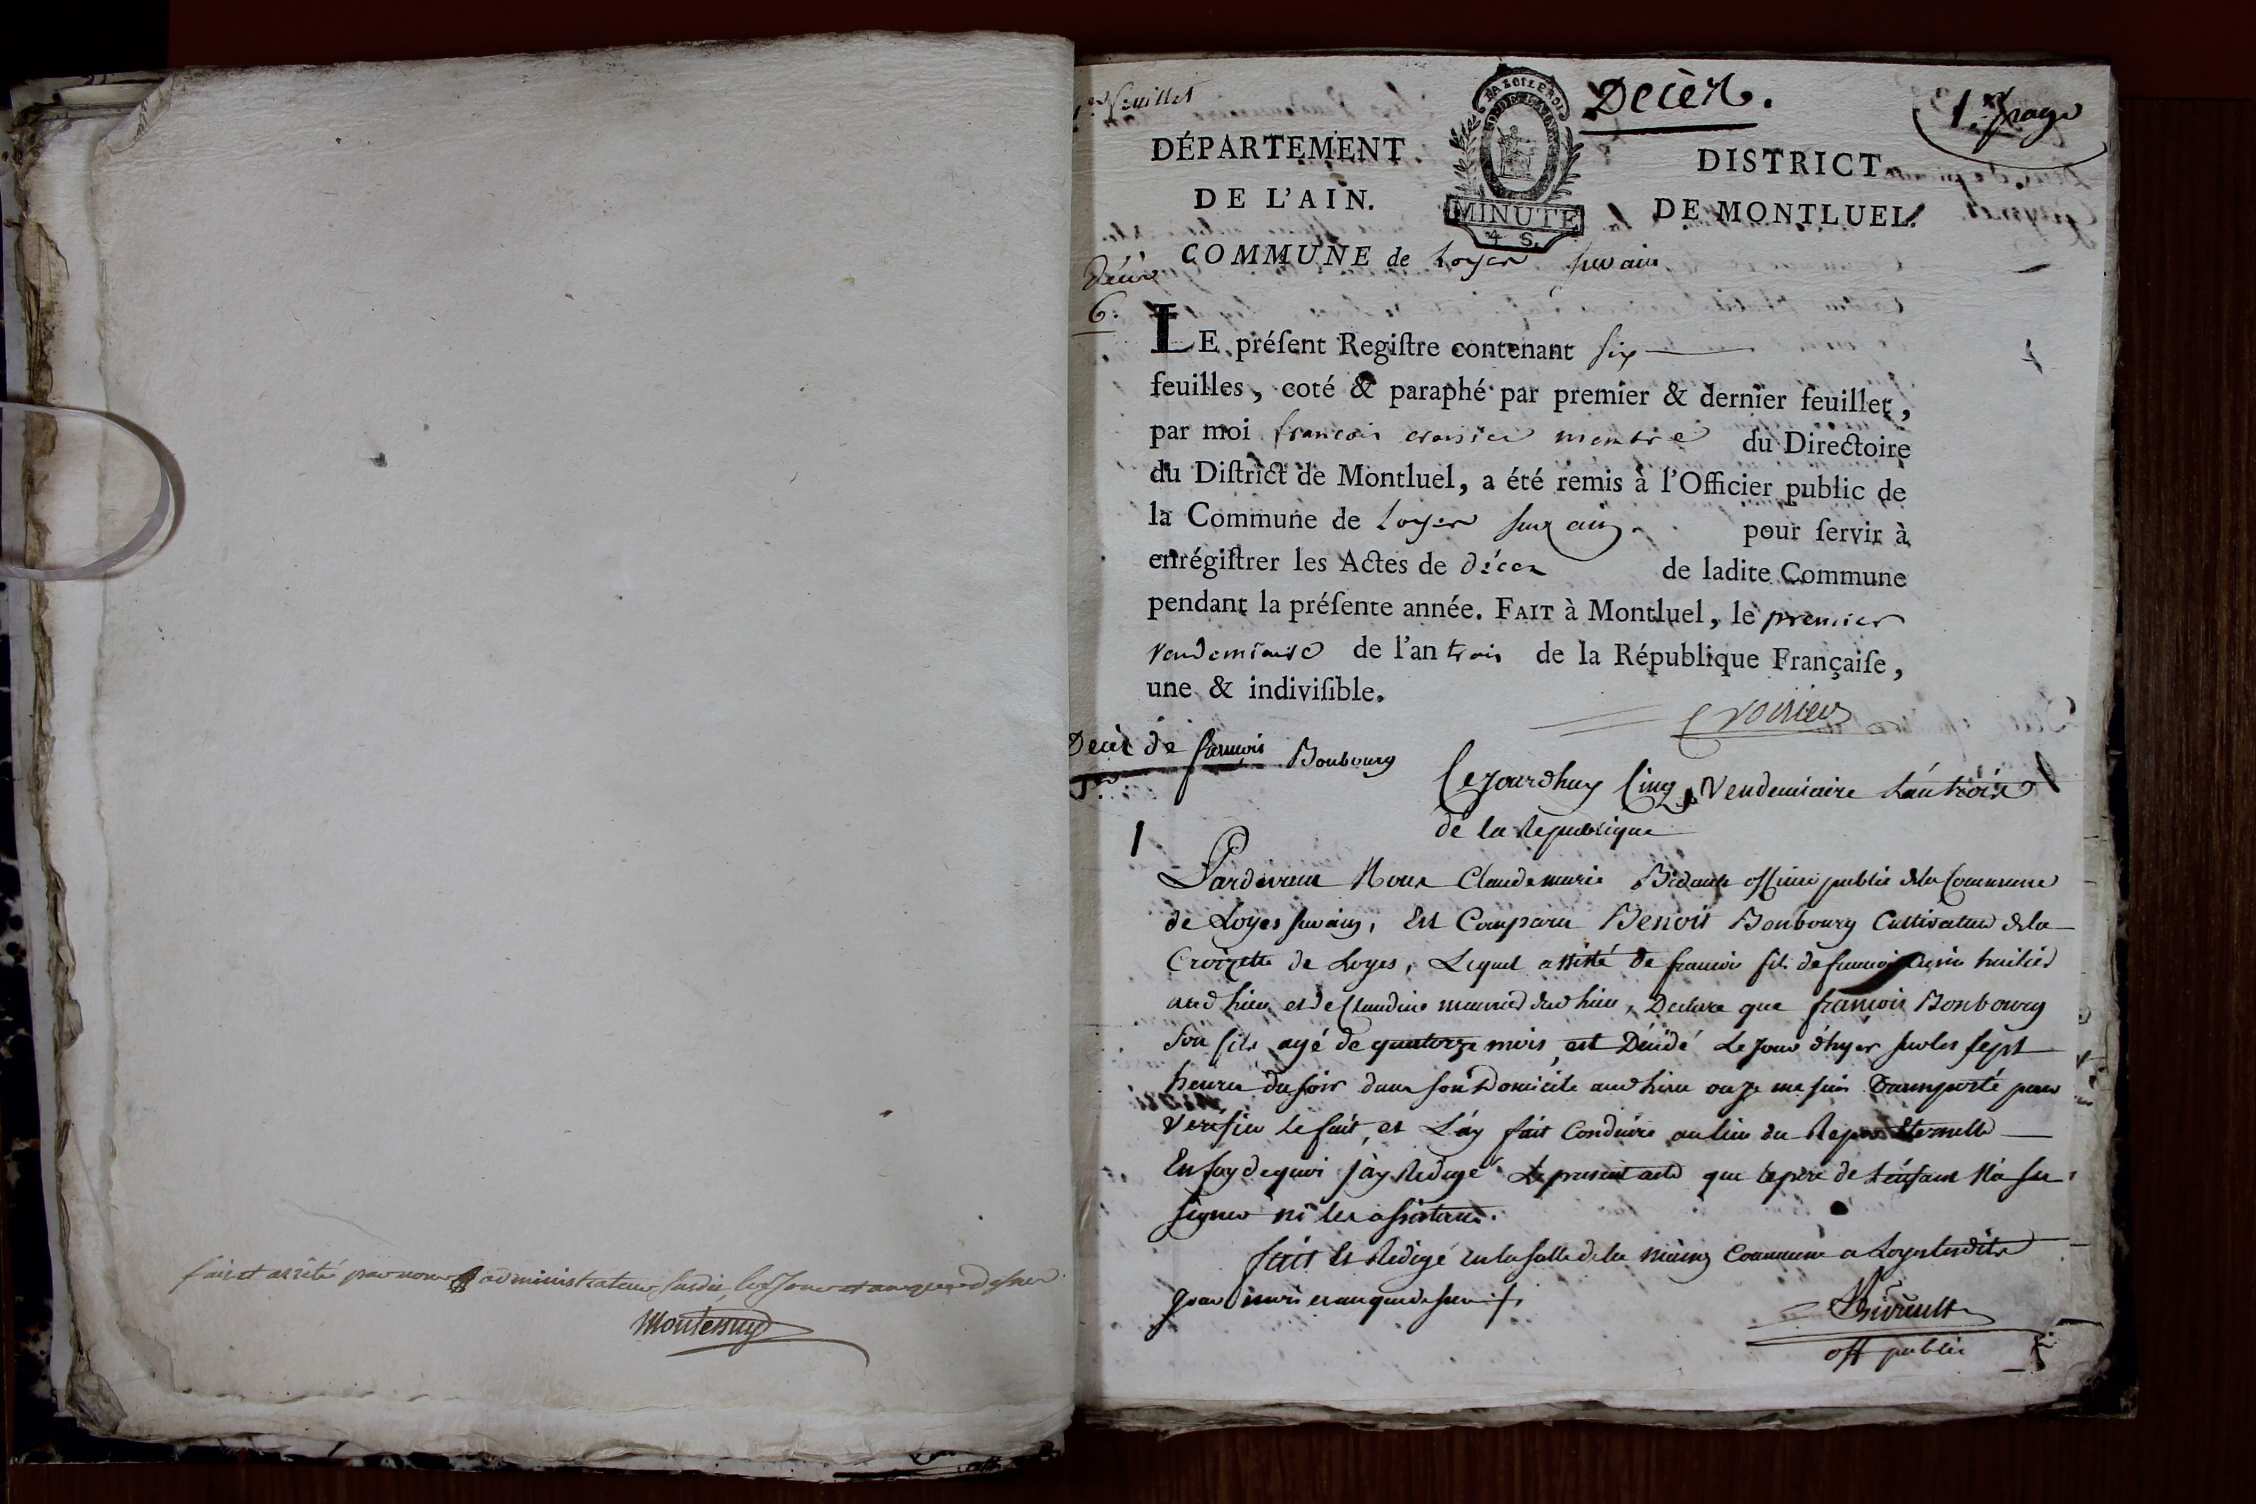 fait et arrêté par nous administrateur susdit les jour et an que dessus
Montessuy
1er feuillet
Decès.
1re page
DÉPARTEMENT
DE L'AIN.
LA LOI LE ROI
MINUTE
4 S.
DISTRICT
DE MONTLUEL.
COMMUNE de Loyes sur ain
Décès
6.
LE préſent Regiſtre contenant six
feuilles, coté & paraphé par premier & dernier feuillet,
par moi francois croisier membre du Directoire
du Diſtrict de Montluel, a été remis à l'Officier public de
la Commune de Loyes sur ain pour ſervir à
enrégiſtrer les Actes de décès de ladite Commune
pendant la préſente année. FAIT à Montluel, le premier
vendemiaire de l'an trois de la République Françaiſe,
une & indiviſible.
Croisier
Decès de françois Bonbourg
1
Cejourdhuy Cinq Vendemiaire L'an trois
de la Republique
Pardevant Nous Claude marie officier public de la Commune
de Loyes sur ain, Est Comparu Benoit Bonbourg Cultivateur de la
Croizette de Loyes, Lequel assisté de francois fils de francois
aud lieu et de Claudine dud lieu, Declare que francois Bonbourg
son fils agé de quatorze mois, est Décédé Le jour d'hyer sur les sept
heures du soir dans son Domicile aud lieu ou je me suis transporté pour
Verifier le fait, et L'ay fait Conduire au lieu du Repos Eternelle
En foy de quoi j'ay Redigé Le present acte que le pere de L'enfant N'a su
signer ni les assistans.
fait Et Redigé en la salle de la maison Commune a Loyes lesdits
jour mois et an que dessus
off public